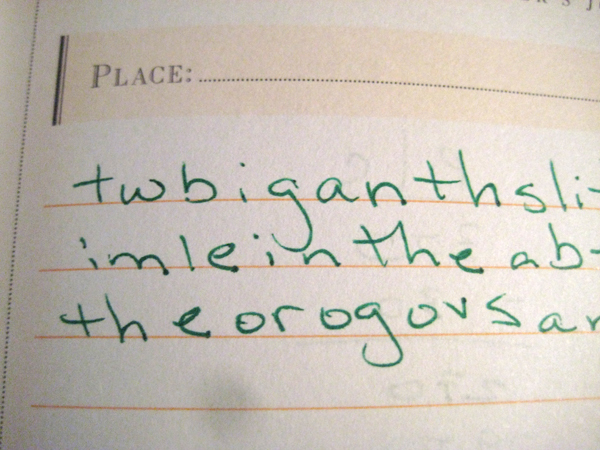 PLACE:
twbiganthsli
imleinthe ab
theorogovsar